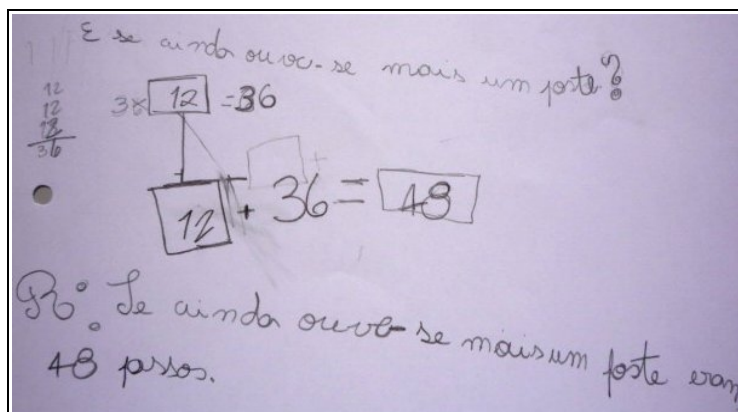 E se ainda ouve-se mais um poste?
12
12
12
36
3x 12 = 36
12 + 36 = 48
R: Se ainda ouve-se mais um poste eram
48 passos.